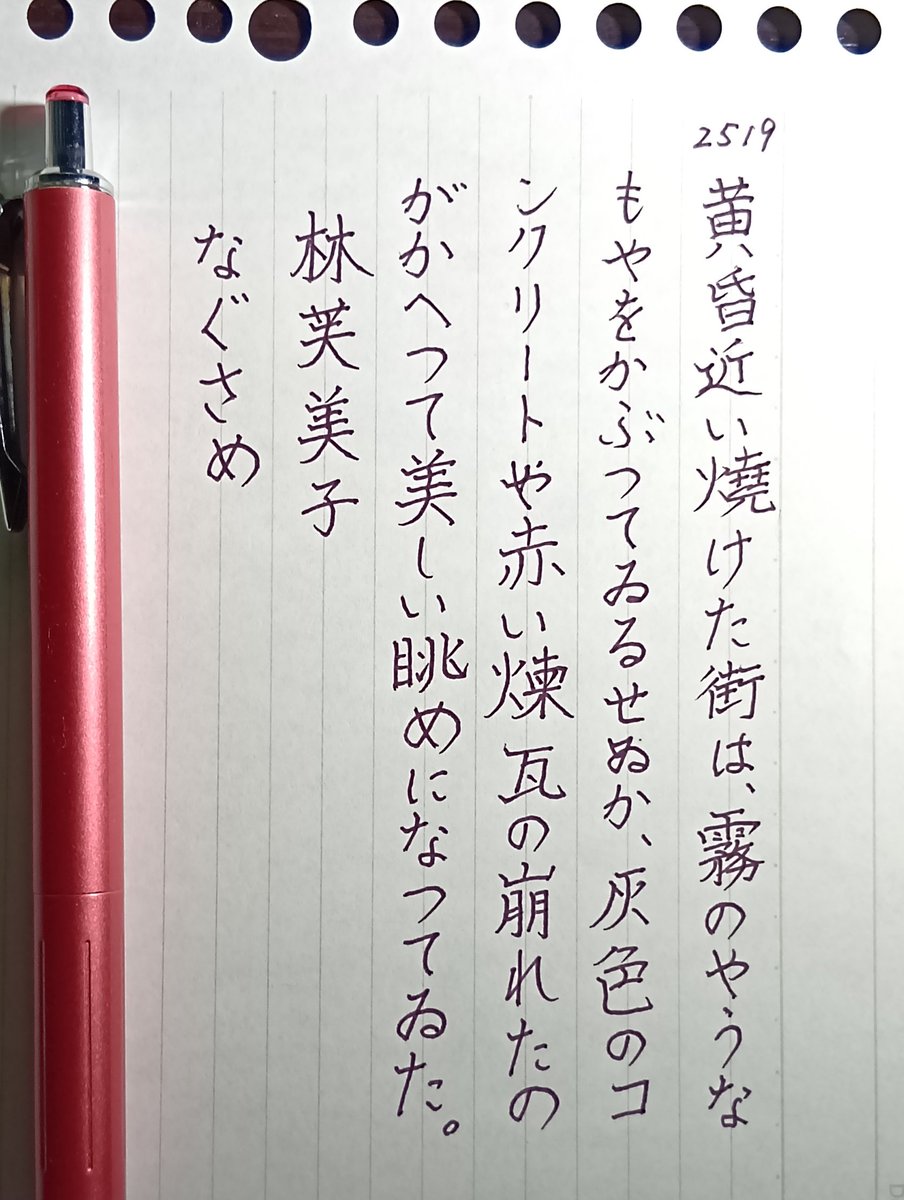 2519
黄昏近い燒けた街は、霧のやうな
もやをかぶつてゐるせゐか、灰色のコ
ンクリートや赤い煉瓦の崩れたの
がかへつて美しい眺めになつてゐた。
林芙美子
なぐさめ